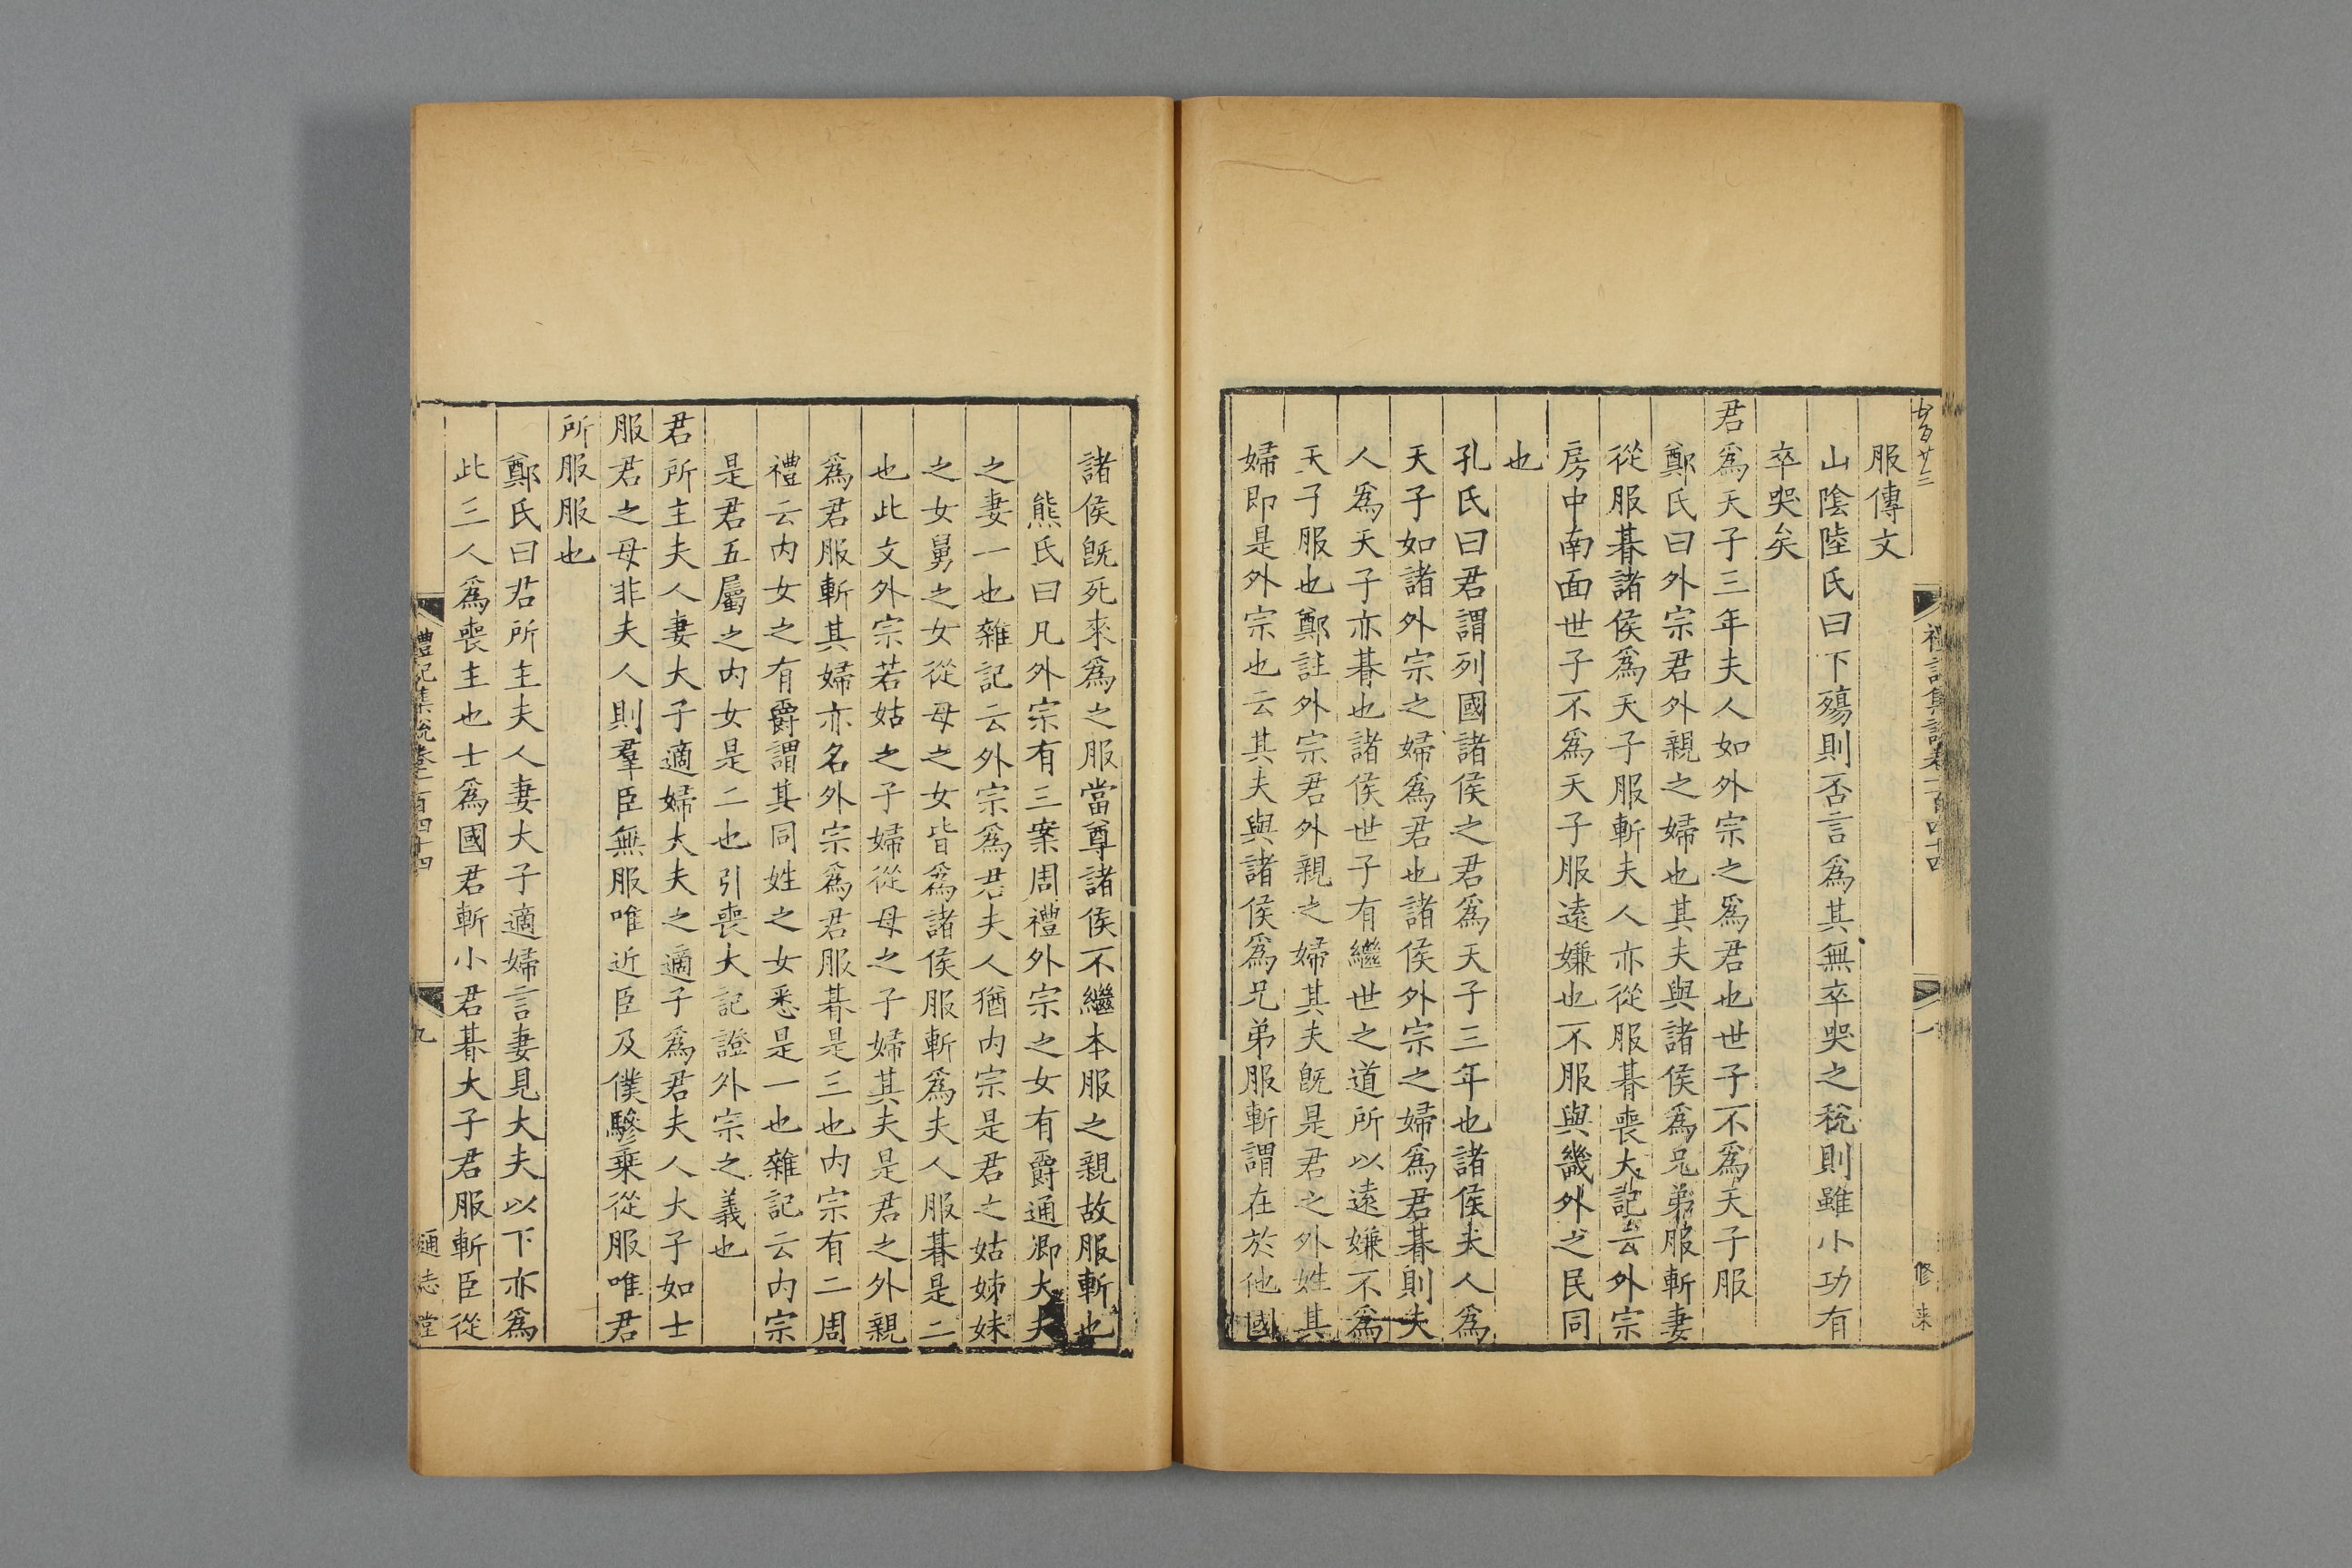 禮記集說卷一百四十四
八
服傳文
山陰陸氏曰下殤則否言爲其無卒哭之稅則雖小功有
卒哭矣
君爲天子三年夫人如外宗之爲君也世子不爲天子服
鄭氏曰外宗君外親之婦也其夫與諸侯爲兄弟服斬妻
從服朞諸侯爲天子服斬夫人亦從服朞喪大記云外宗
房中南面世子不爲天子服遠嫌也不服與畿外之民同
也
孔氏曰君謂列國諸侯之君爲天子三年也諸侯夫人爲
天子如諸外宗之婦爲君也諸侯外宗之婦爲君朞則夫
人爲天子亦朞也諸侯世子有繼世之道所以遠嫌不爲
天子服也鄭註外宗君外親之婦其夫旣是君之外姓其
婦即是外宗也云其夫與諸侯爲兄弟服斬謂在於他國
諸侯旣死來爲之服當尊諸侯不繼本服之親故服斬也
熊氏曰凡外宗有三案周禮外宗之女有爵通卿大夫
之妻一也雜記云外宗爲君夫人猶內宗是君之姑姊妹
之女舅之女從母之女皆爲諸侯服斬爲夫人服朞是二
也此文外宗若姑之子婦從母之子婦其夫是君之外親
爲君服斬其婦亦名外宗爲君服朞是三也內宗有二周
禮云內女之有爵謂其同姓之女悉是一也雜記云內宗
是君五屬之內女是二也引喪大記證外宗之義也
君所主夫人妻大子適婦大夫之適子爲君夫人大子如士
服君之母非夫人則羣臣無服唯近臣及僕驂乗從服唯君
所服服也
鄭氏曰君所主夫人妻大子適婦言妻見大夫以下亦爲
此三人爲喪主也士爲國君斬小君朞大子君服斬臣從
禮記集說卷一百四十四
九
通志堂